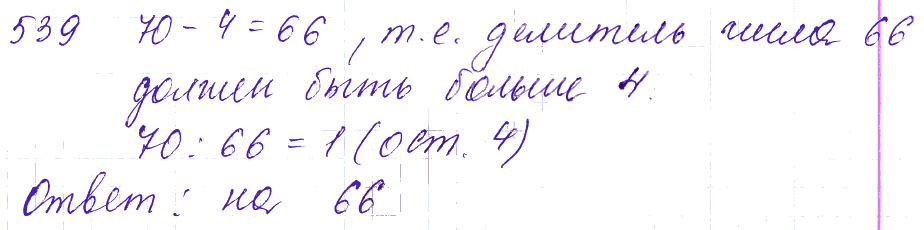 539 70 - 4 = 66, т.е. делитель числа 66
должен быть больше 4.
70 : 66 = 1 (ост. 4)
Ответ: на 66